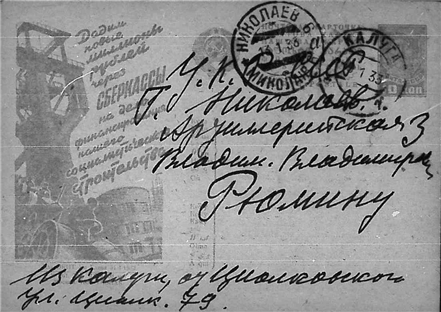 Дадим
новые
миллионы
рублей
через
СБЕРКАССЫ
на дело
финансирования
нашего
социалистическ
строительства
КАРТОЧКА
НИКОЛАЕВ
1 33
НИКОЛАЕВ
КАЛУГА
1 33
КОП
У.
Г. Николаев
Владим. Владимиров
Рюмину
Из Калуги, от Циолковского
ул. Циолк. 79.